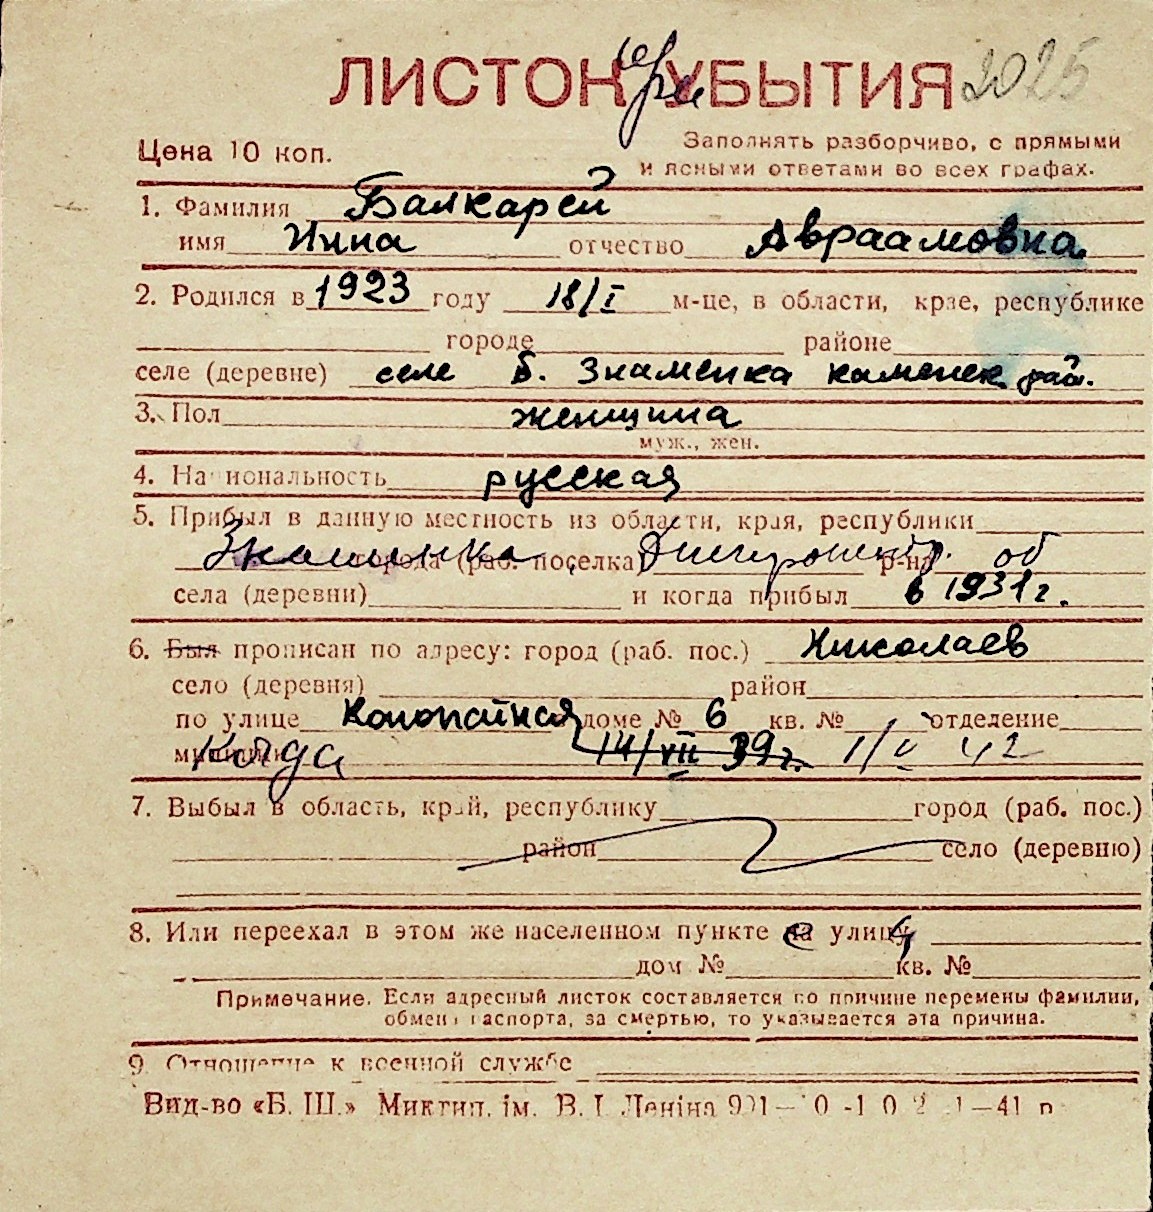 ЛИСТОК УБЫТИЯ 2025
при
Цена 10 коп.
Заполнять разборчиво, с прямыми
и ясными ответами во всех графах.
1. Фамилия Балкарей
имя Инна отчество Авраамовна
2. Родился в 1923 году 18/I м-це, в области, крае, республике
городе районе
селе (деревне) селе Б. Знаменка каменск. рай.
3. Пол женщина
муж., жен.
4. Национальность русская
5. Прибыл в данную местность из области, края, республики
Знаменка города (раб. поселка) Днепропетр. р-на об
села (деревни) и когда прибыл в 1931 г.
6. Был прописан по адресу: город (раб. пос.) Николаев
село (деревня) район
по улице Канатная доме № 6 кв. № отделение
милиции Когда 14/VII 39 г. 1/V 42
7. Выбыл в область, край, республику город (раб. пос.)
район село (деревню)
8. Или переехал в этом же населенном пункте на улицу
дом № кв. №
Примечание. Если адресный листок составляется по причине перемены фамилии,
обмена паспорта, за смертью, то указывается эта причина.
9. Отношение к военной службе
Вид-во «Б. Ш.» Миктип. ім. В. І. Леніна